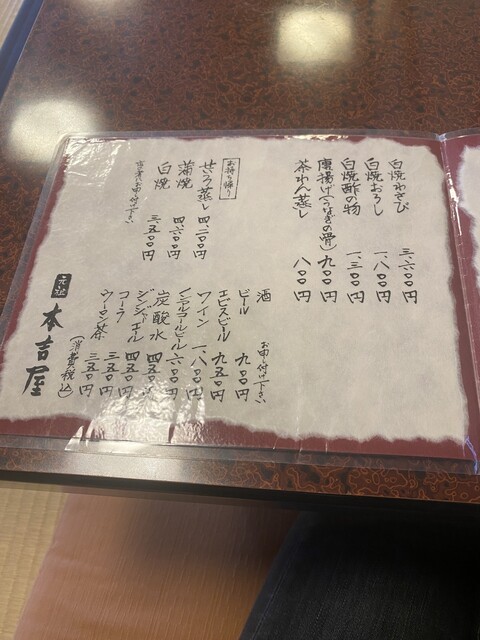 白焼わさび 三、六〇〇円
白焼おろし 一、八〇〇円
白焼酢の物 一、三〇〇円
唐揚げ(うなぎの骨) 九〇〇円
茶わん蒸し 八〇〇円
お持ち帰り
せいろ蒸し 四、二〇〇円
蒲焼 四、六〇〇円
白焼 三、五〇〇円
お申し付け下さい
酒 お申し付け下さい
ビール 九〇〇円
エビスビール 九五〇円
ワイン 一、八〇〇円
ノンアルコールビール 六〇〇円
炭酸水 四五〇円
ジンジャーエール 四五〇円
コーラ 三五〇円
ウーロン茶 三五〇円
(消費税込)
元祖 本吉屋